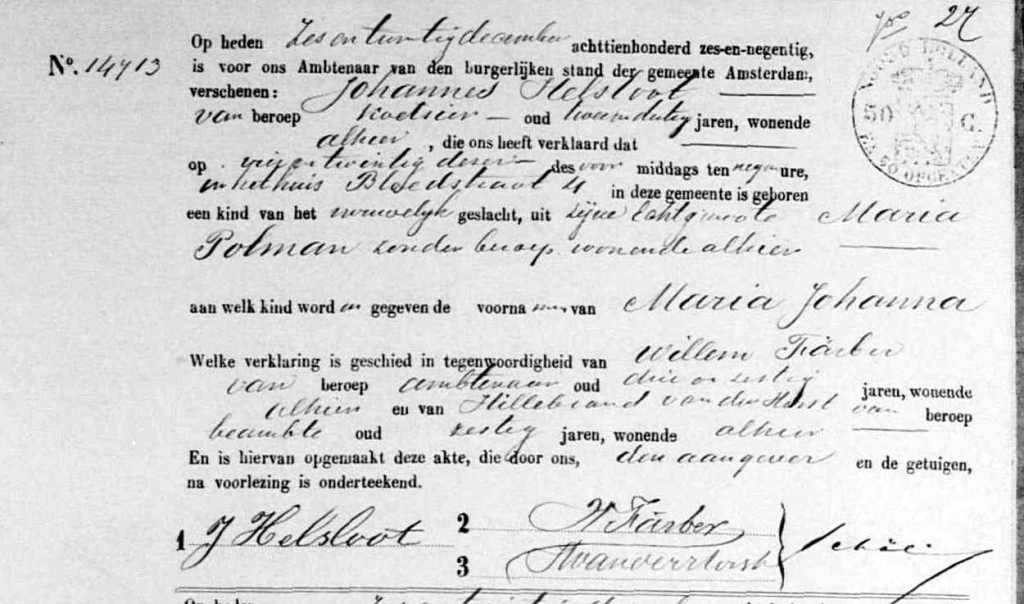 27
Op heden Zes en twintig december achttienhonderd zes-en-negentig,
Nº. 14713 is voor ons Ambtenaar van den burgerlijken stand der gemeente Amsterdam,
verschenen: Johannes Helsloot
van beroep koetsier oud twee en dertig jaren, wonende
alhier, die ons heeft verklaard dat
op vijf en twintig dezer des voor middags ten negen ure,
in het huis Bloedstraat 4 in deze gemeente is geboren
een kind van het vrouwelijk geslacht, uit zijne Echtgenoote Maria
Polman zonder beroep wonende alhier
aan welk kind word en gegeven de voorna men van Maria Johanna
Welke verklaring is geschied in tegenwoordigheid van Willem Färber
van beroep ambtenaar oud drie en zestig jaren, wonende
alhier en van Hillebrand van der Horst van beroep
beambte oud zestig jaren, wonende alhier
En is hiervan opgemaakt deze akte, die door ons, den aangever en de getuigen,
na voorlezing is onderteekend.
1 J Helsloot 2 W Färber
3 H van der Horst
NOORD HOLLAND
50 C.
EN 50 OPCENTEN
Op heden